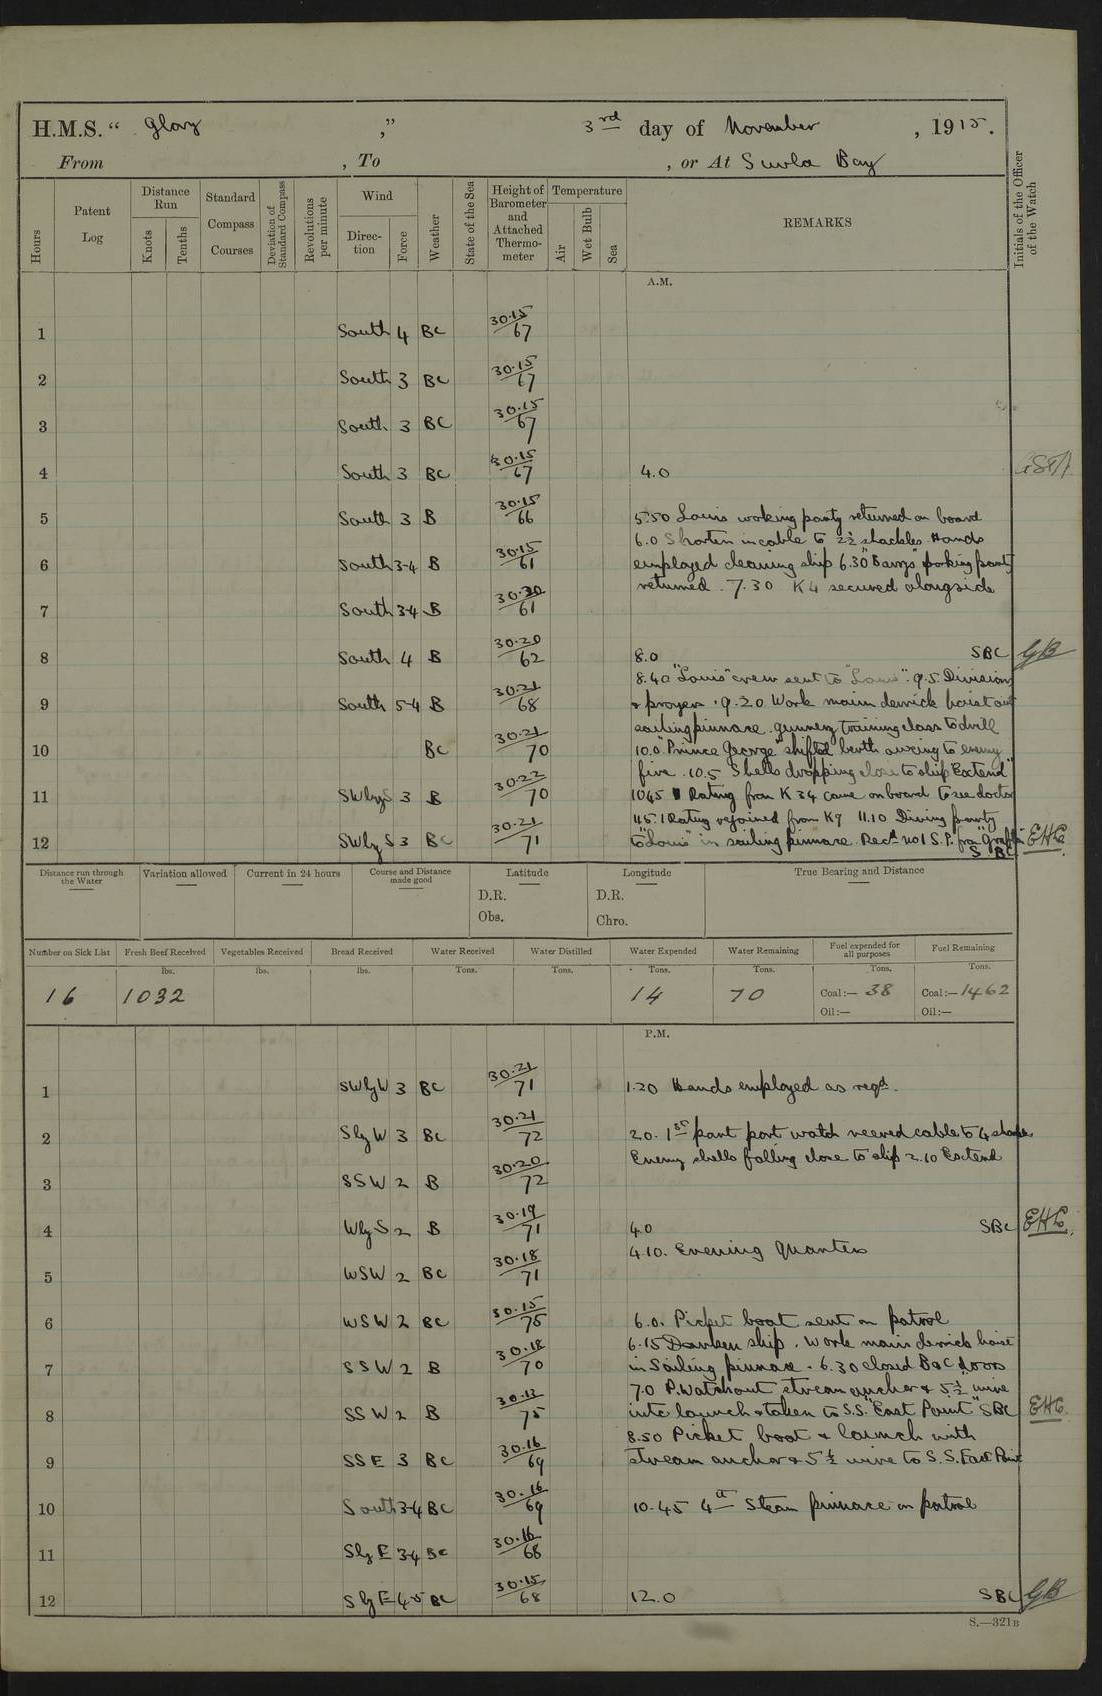 H.M.S. " Glory ," 3rd day of November , 1915.
From , To , or At Suvla Bay
Hours
Patent Log
Distance Run
Knots
Tenths
Standard Compass Courses
Deviation of Standard Compass
Revolutions per minute
Wind
Direction
Force
Weather
State of the Sea
Height of Barometer and Attached Thermometer
Temperature
Air
Wet Bulb
Sea
REMARKS
Initials of the Officer of the Watch
A.M.
1 South 4 BC 30.15/67
2 South 3 BC 30.15/67
3 South 3 BC 30.15/67
4 South 3 BC 30.15/67 4.0
5 South 3 B 30.15/66 5.50 Louis working party returned on board
6.0 Shorten in cable to 2½ shackles. Hands
6 South 3-4 B 30.15/61 employed cleaning ship 6.30 "Barrys" working party
returned. 7.30 K4 secured alongside
7 South 3-4 B 30.20/61
8 South 4 B 30.20/62 8.0 SBC GB
8.40 "Louis" crew sent to "Louis". 9.5 Divisions
9 South 5-4 B 30.21/68 & prayers. 9.20 Work main derrick hoist out
sailing pinnace. gunnery training class to drill
10 BC 30.21/70 10.0 "Prince George" shifted berth owing to enemy
fire. 10.5 Shells dropping close to ship "Extend"
11 SWbyS 3 B 30.22/70 1045 Rating from K34 came on board to see doctor
11.5. 1 Rating rejoined from K9 11.10 Diving party
12 SWbyS 3 BC 30.21/71 to "Louis" in sailing pinnace. Recd No1 S.P. from EHC
SBC
Distance run through the Water
Variation allowed
Current in 24 hours
Course and Distance made good
Latitude
D.R.
Obs.
Longitude
D.R.
Chro.
True Bearing and Distance
Number on Sick List
Fresh Beef Received
Vegetables Received
Bread Received
Water Received
Water Distilled
Water Expended
Water Remaining
Fuel expended for all purposes
Fuel Remaining
lbs. lbs. lbs. Tons. Tons. Tons. Tons. Tons. Tons.
16 1032 14 70 Coal:— 38 Coal:— 1462
Oil:— Oil:—
P.M.
1 SWbyW 3 BC 30.21/71 1.20 Hands employed as reqd.
2 SbyW 3 BC 30.21/72 2.0. 1st part port watch veered cable to 4 shackles
Enemy shells falling close to ship 2.10 Extend
3 SSW 2 B 30.20/72
4 WbyS 2 B 30.19/71 4.0 SBC EHC
4.10. Evening Quarters
5 WSW 2 BC 30.18/71
6 WSW 2 BC 30.15/75 6.0. Picket boat sent on patrol
6.15 Darken ship. Work main derrick hoist
7 SSW 2 B 30.18/70 in Sailing pinnace. 6.30 closed B&C doors
7.0 P. Watch out stream anchor & 5½" wire
8 SSW 2 B 75 into launch & taken to S.S. "East Point" SBC EHC
8.50 Picket boat & launch with
9 SSE 3 BC 30.16/69 stream anchor & 5½ wire to S.S. East Point
10 South 3-4 BC 30.16/69 10.45 4th Steam pinnace on patrol
11 SbyE 3-4 BC 30.16/68
12 SbyE 4-5 BC 30.15/68 12.0 SBC GB
S.—321B